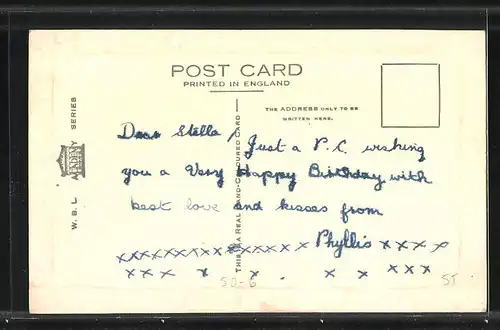 POST CARD
PRINTED IN ENGLAND
THE ADDRESS ONLY TO BE
WRITTEN HERE.
W. B. L. ACADEMY SERIES
THIS IS A REAL HAND-COLOURED CARD
Dear Stella, Just a P.C. wishing
you a Very Happy Birthday with
best love and kisses from
Phyllis x x x x
x x x x x x x x x x x x x x x
x x x x x x x x x x
50-6
5T